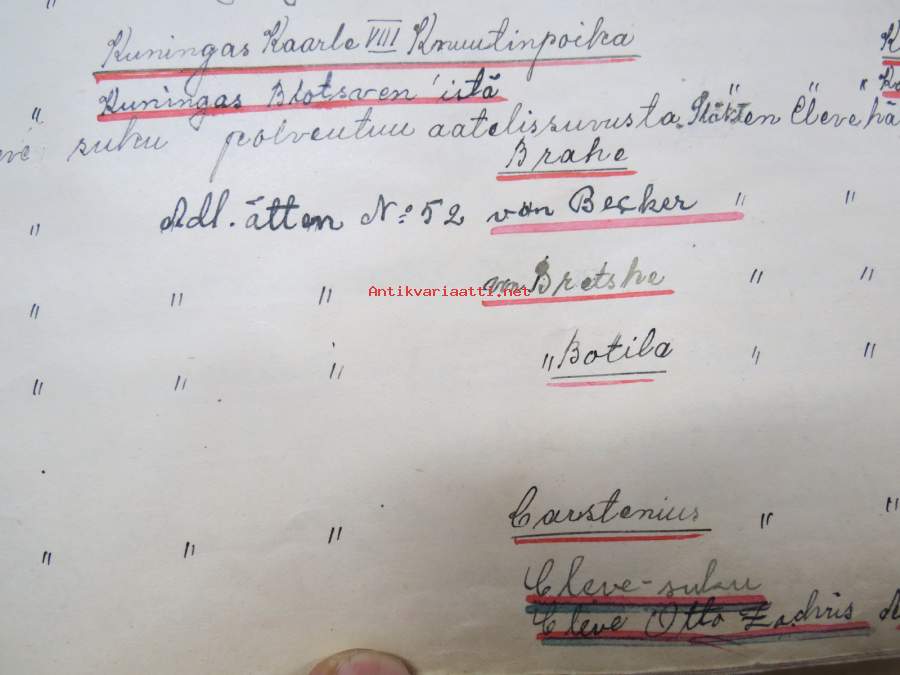 Kuningas Kaarle VIII Knuutinpoika K
" Kuningas Blotsven'istä " " "
eve suku polveutuu aatelissuvusta Släkten Cleve hä
Brahe
" Adl. ätten No: 52 von Becker " "
" " " von Bretske " "
Antikvariaatti.net
" " " " Botila " "
" " " Carstenius " "
Cleve-suku
Cleve Otto Zachris